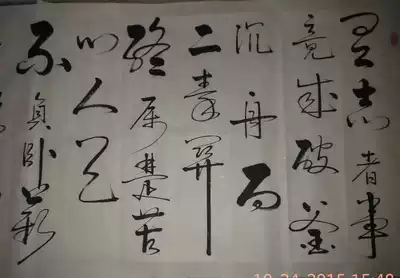 有志者事
竟成破釜
沉舟百
二秦關
終属楚苦
心人天
不負卧薪
10-24-2015 15:48